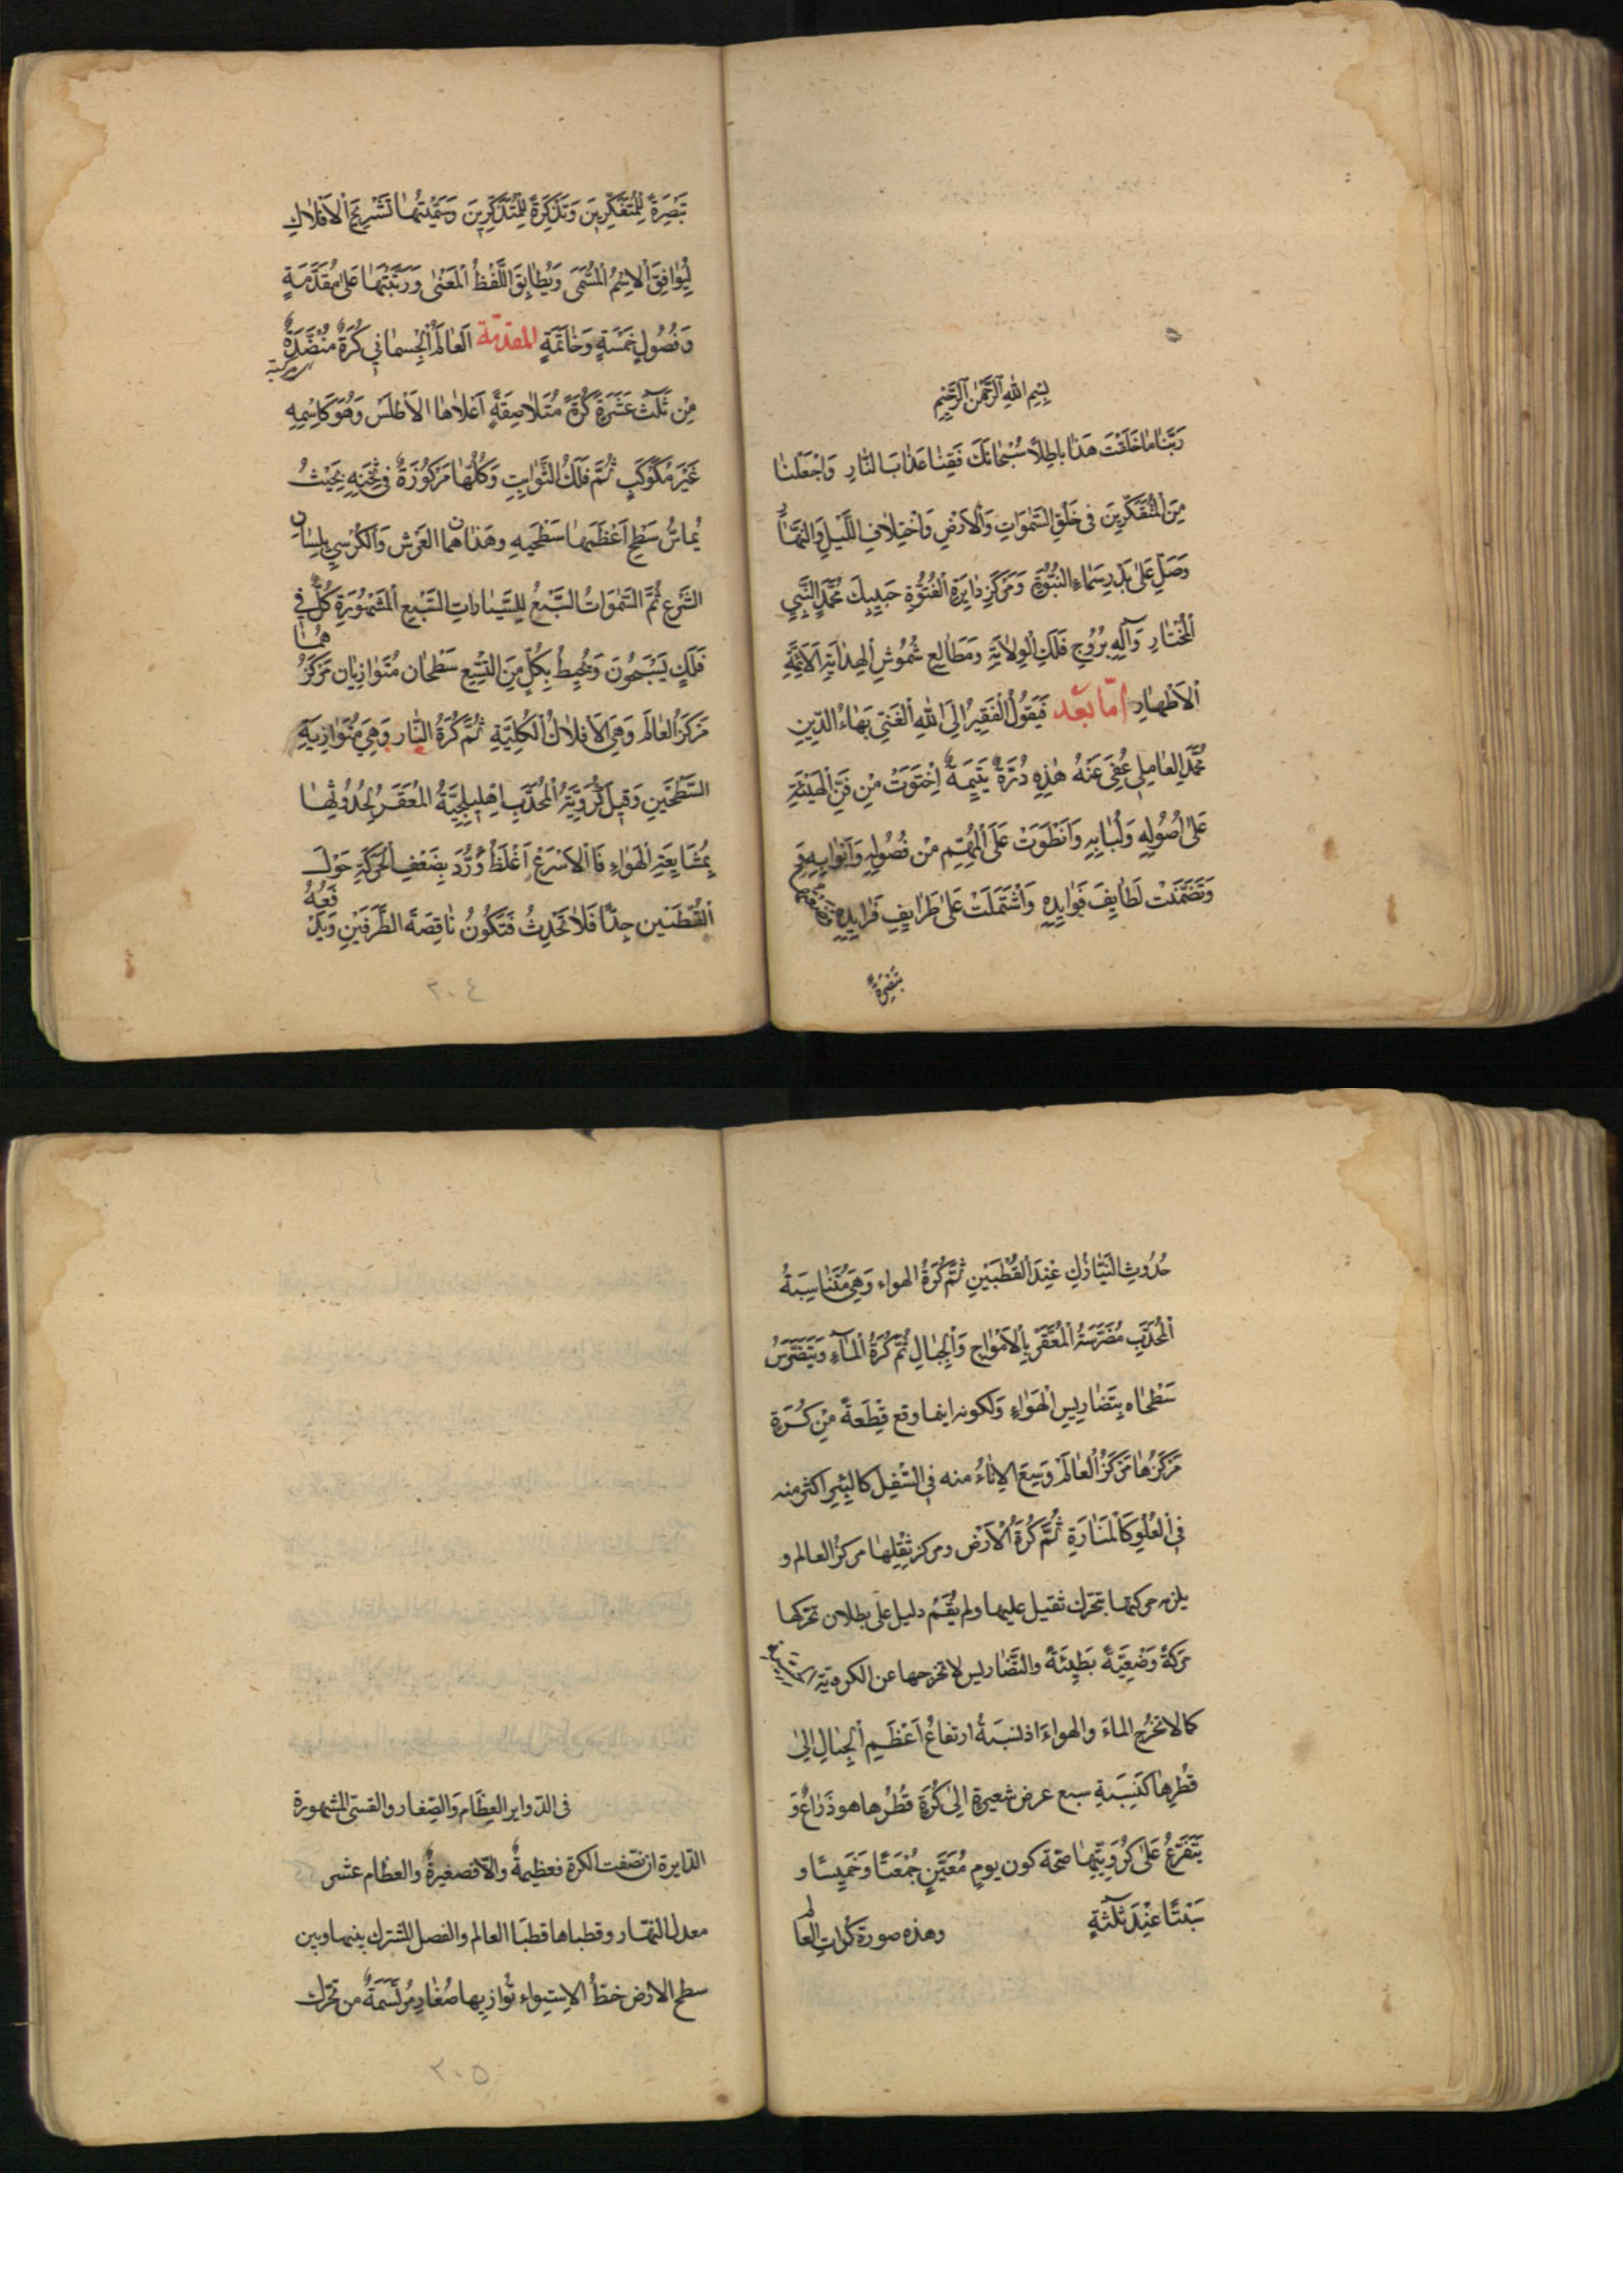 بِسْمِ اللهِ الرَّحْمٰنِ الرَّحِيْمِ
رَبَّنَا مَا خَلَقْتَ هَذَا بَاطِلًا سُبْحَانَكَ فَقِنَا عَذَابَ النَّارِ وَاجْعَلْنَا
مِنَ الْمُتَفَكِّرِيْنَ فِى خَلْقِ السَّمٰوَاتِ وَالْاَرْضِ وَاخْتِلَافِ اللَّيْلِ وَالنَّهَارِ
وَصَلِّ عَلٰى بَدْرِ سَمَاءِ النُّبُوَّةِ وَمَرْكَزِ دَايِرَةِ الْفُتُوَّةِ حَبِيْبِكَ مُحَمَّدٍ النَّبِيِّ
الْمُخْتَارِ وَآلِهِ بُرُوْجِ فَلَكِ الْوِلَايَةِ وَمَطَالِعِ شُمُوْسِ الْهِدَايَةِ الْاَئِمَّةِ
الْاَطْهَارِ اَمَّا بَعْد فَيَقُوْلُ الْفَقِيْرُ اِلَى اللهِ الْغَنِيِّ بَهَاءُ الدِّيْنِ
مُحَمَّدٌ الْعَامِلِي عُفِيَ عَنْهُ هٰذِهِ دُرَّةٌ يَتِيْمَةٌ اِحْتَوَتْ مِنْ فَنِّ الْهَيْئَةِ
عَلٰى اُصُوْلِهِ وَلُبَابِهِ وَانْطَوَتْ عَلَى الْمُهِمِّ مِنْ فُصُوْلِهِ وَاَبْوَابِهِ وَ
وَتَضَمَّنَتْ لَطَايِفَ فَوَايِدِهِ وَاشْتَمَلَتْ عَلٰى طَرَايِفِ فَرَايِدِهِ
تَبْصِرَةً
تَبْصِرَةً لِلْمُتَفَكِّرِيْنَ وَتَذْكِرَةً لِلْمُتَذَكِّرِيْنَ وَسَمَّيْتُهَا تَشْرِيْحَ الْاَفْلَاكِ
لِيُوَافِقَ الْاِسْمُ الْمُسَمَّى وَيُطَابِقَ اللَّفْظُ الْمَعْنٰى وَرَتَّبْتُهَا عَلٰى مُقَدَّمَةٍ
وَفُصُوْلٍ خَمْسَةٍ وَخَاتَمَةٍ المقدمة اَلْعَالَمُ الْجِسْمَانِي كُرَةٌ مُنَضَّدَةٌ
مِنْ ثَلٰثَ عَشَرَةَ كُرَةً مُتَلَاصِقَةٍ اَعْلَاهَا الْاَطْلَسُ وَهُوَ كَاسْمِهِ
غَيْرَ مُكَوْكَبٍ ثُمَّ فَلَكُ الثَّوَابِتِ وَكُلُّهَا مَرْكُوْزَةٌ فِى ثِخَنِهِ بِحَيْثُ
يُمَاسُّ سَطْحُ اَعْظَمِهَا سَطْحَيْهِ وَهَذَانِ هُمَا الْعَرْشُ وَالْكُرْسِي بِلِسَانِ
الشَّرْعِ ثُمَّ السَّمٰوَاتُ السَّبْعُ لِلسَّيَّارَاتِ السَّبْعِ الْمَشْهُوْرَةِ كُلٌّ فِى
فَلَكٍ يَسْبَحُوْنَ وَيُحِيْطُ بِكُلٍّ مِنَ التِّسْعِ سَطْحَانِ مُتَوَازِيَانِ مَرْكَزُهُمَا
مَرْكَزُ الْعَالَمِ وَهِيَ الْاَفْلَاكُ الْكُلِّيَّةِ ثُمَّ كُرَةُ النَّارِ وَهِيَ مُتَوَازِيَةِ
السَّطْحَيْنِ وَقِيْلَ كُرَوِيَّةُ الْمُحَدَّبِ اِهْلِيْلِجِيَّةُ الْمُقَعَّرِ لِحُدُوْثِهَا
بِمُشَايِعَةِ الْهَوَاءِ فَالْاَسْرَعُ اَغْلَظُ وَرُدَّ بِضَعْفِ الْحَرَكَةِ حَوْلَ
الْقُطْبَيْنِ جِدًّا فَلَا تَحْدُثُ فَتَكُوْنُ نَاقِصَةَ الطَّرَفَيْنِ وَيَدْفَعُهُ
٢٠٤
حُدُوْثُ النَّيَازِكِ عِنْدَ الْقُطْبَيْنِ ثُمَّ كُرَةُ الهواء وَهِيَ مُتَنَاسِبَةُ
الْمُحَدَّبِ مُضَرَّسَةُ الْمُقَعَّرِ بِالْاَمْوَاجِ وَالْجِبَالِ ثُمَّ كُرَةُ الْمَاءِ وَيَتَضَرَّسُ
سَطْحَاه بِتَضَارِيْسِ الْهَوَاءِ وَلكونه اينما وقع قِطْعَةً مِنْ كُرَةٍ
مَرْكَزُهَا مَرْكَزُ الْعَالَمِ وَيَسَعُ الْاِنَاءُ منه فى السُّفْلِ كالْبِئْرِ اكثر منه
فِى الْعُلْوِ كَالْمَنَارَةِ ثُمَّ كُرَةُ الْاَرْضِ ومركز ثِقْلِهَا مركزُ العالم و
يلزم حركتها بتحرك ثقيل عليها ولم يُقَمْ دليل على بطلان تحركها
حركةً وَضْعِيَّةً بَطِيْئَةً والتَّضَاريس لا تخرجها عن الكروية
كما لا تخرج الماءَ والهواءَ اذ نسبَةُ ارتفاعُ اَعْظَمِ الْجِبَالِ اِلٰى
قُطْرِهَا كَنِسْبَةِ سبع عرض شعيرةٍ اِلٰى كُرَةٍ قُطْرُها هو ذِرَاعٌ وَ
يَتَفَرَّعُ عَلٰى كُرُوِيَّتِهَا صحة كون يومٍ مُعَيَّنٍ جُمْعَتًا وَخَمِيْسًا و
سَبْتًا عِنْدَ ثَلٰثَةٍ وهذه صورة كُراتِ العالم
فى الدواير العِظَامِ وَالصِّغار والقسى المشهورة
الدايرة ان نصّفت الكرة فعظيمةٌ والّا فصغيرةٌ والعظام عشر
معدل النهار وقطباها قطبَا العالم والفصل المشترك بينها وبين
سطح الارض خطُّ الاستواءِ تُوازيها صُغَارٌ مُرْتَسَمَةٌ من تحرك
٢٠٥